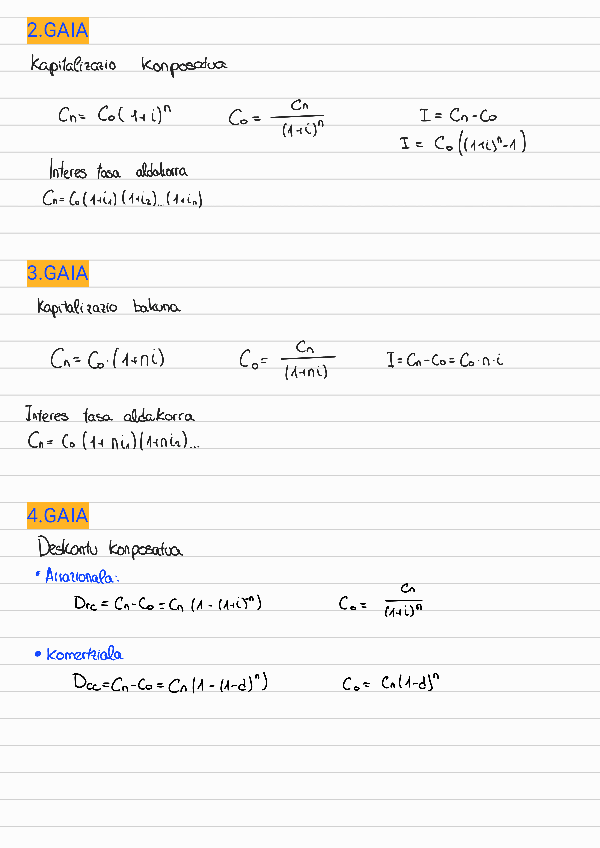 2.GAIA
Kapitalizazio konposatua
Cn = Co(1+i)^n    Co = Cn/(1+i)^n    I = Cn-Co
I = Co((1+i)^n-1)
Interes tasa aldakorra
Cn = Co(1+i₁)(1+i₂)...(1+in)
3.GAIA
Kapitalizazio bakuna
Cn = Co·(1+ni)    Co = Cn/(1+ni)    I = Cn-Co = Co·n·i
Interes tasa aldakorra
Cn = Co (1+ni₁)(1+ni₂)...
4.GAIA
Deskontu konposatua
• Arrazionala:
Drc = Cn-Co = Cn (1-(1+i)^n)    Co = Cn/(1+i)^n
• Komertziala
Dcc = Cn-Co = Cn(1-(1-d)^n)    Co = Cn(1-d)^n